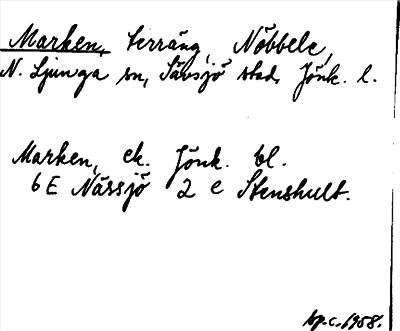 Marken, terräng, Nöbbele,
N. Ljunga sn, Sävsjö stad, Jönk. l.
Marken, ek. Jönk. bl.
6 E Nässjö 2 e Stenshult.
tp.c. 1958.